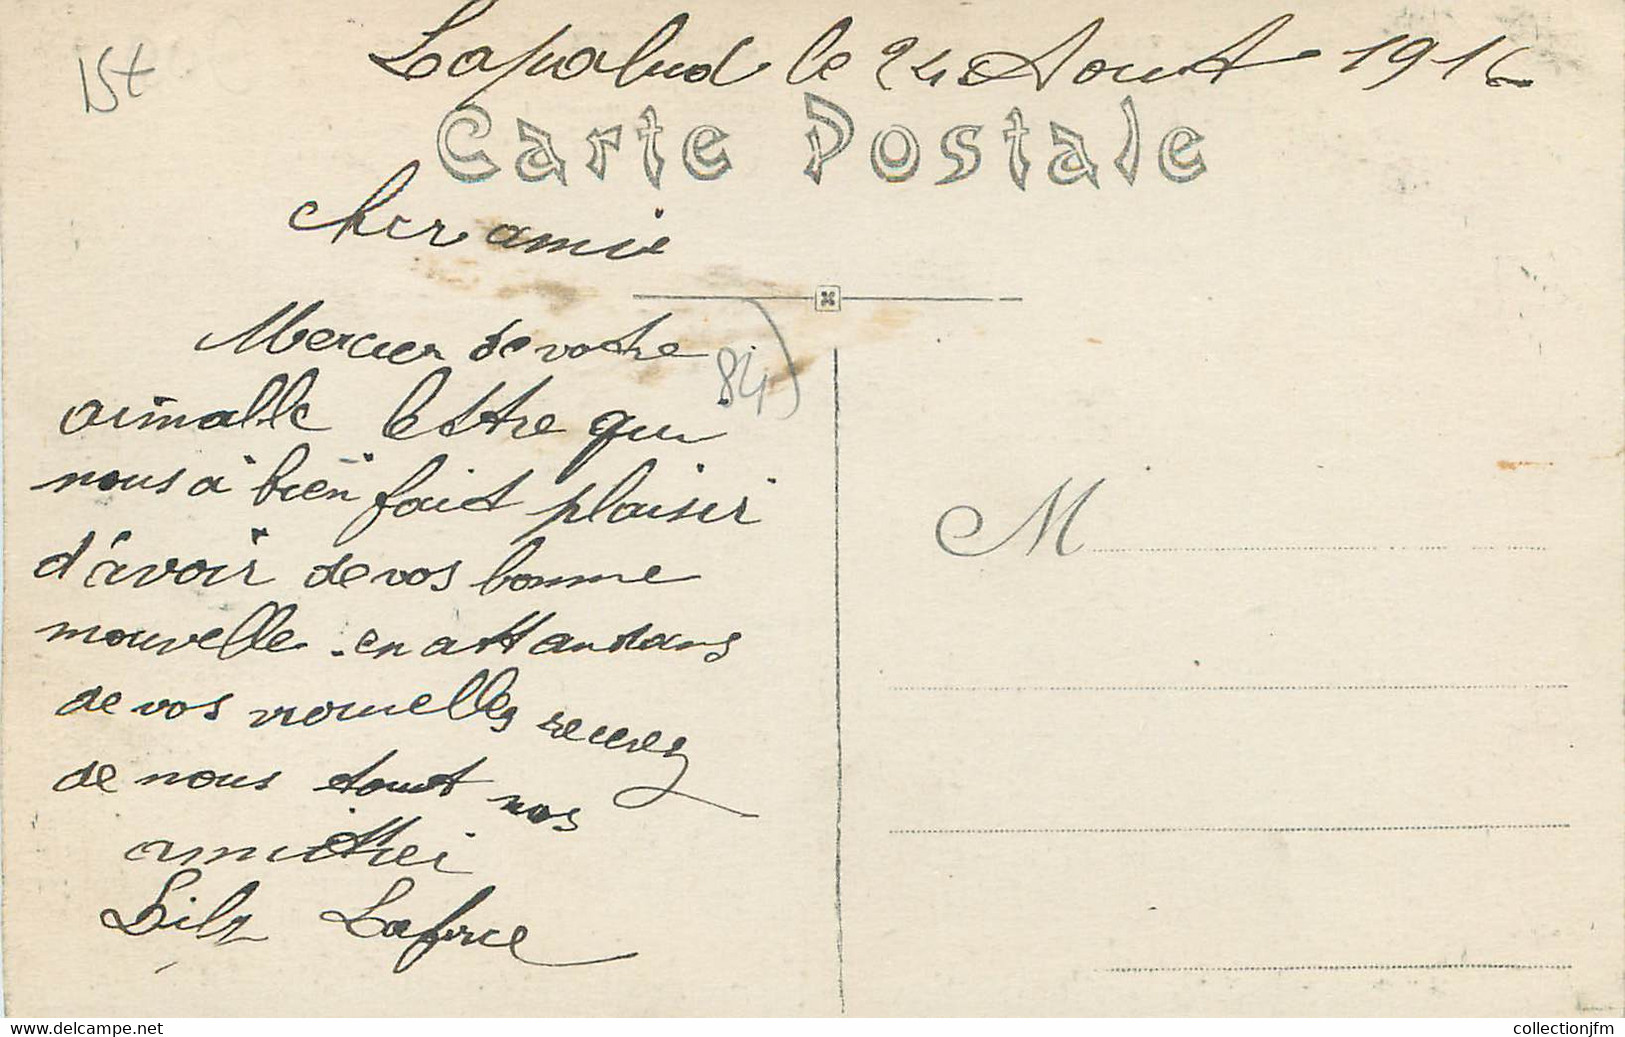 Lapalud le 24 Aout 1916
15€
Carte Postale
cher amie
Mercier de votre
aimable lettre qui
84)
nous à bien fait plaisir
M
d'avoir de vos bonne
nouvelle. en attandans
de vos nouvelles recevez
de nous tout nos
amitiei
Lafrce
collectionjfm.delcampe.net
collectionjfm